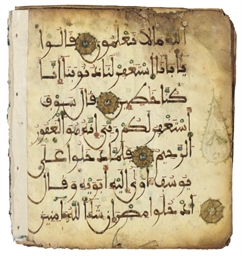 الله ما لا تعلمون قالوا
يأبانا استغفر لنا ذنوبنا إنا
كنا خطين قال سوف
أستغفر لكم ربي إنه هو الغفور
الرحيم فلما دخلوا على
يوسف آوى إليه أبويه وقال
ادخلوا مصر إن شاء الله آمنين